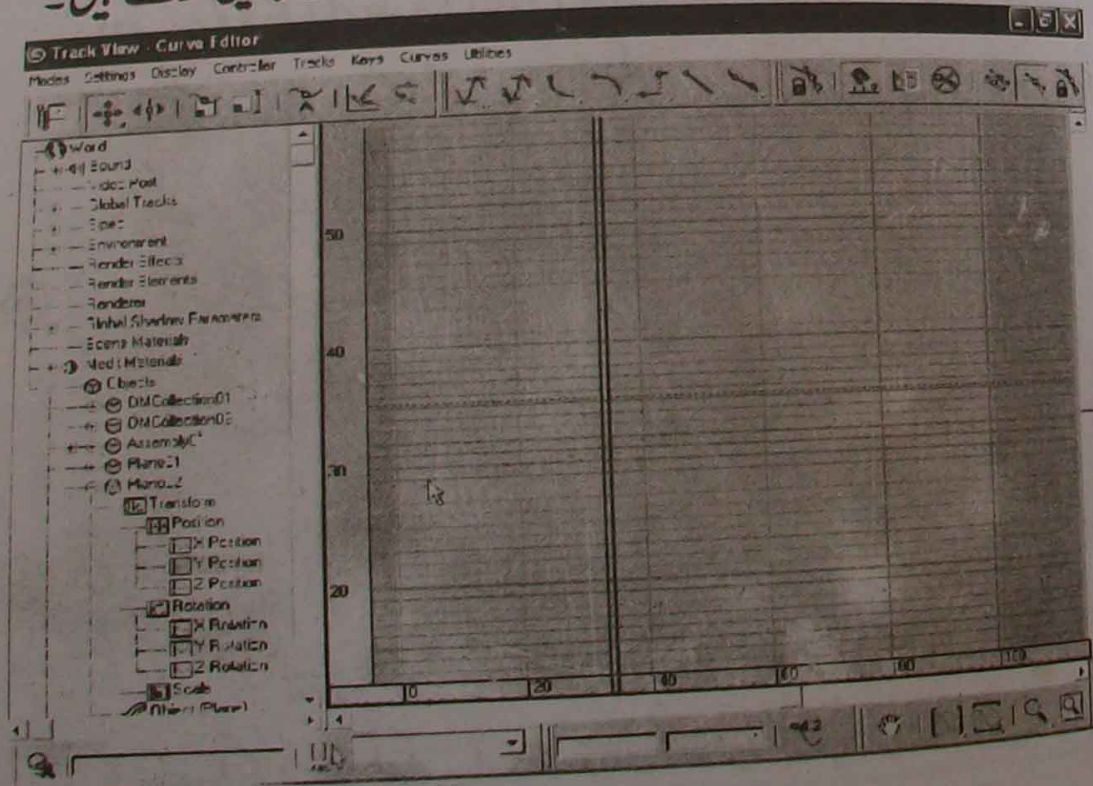 Track View - Curve Editor
Modes Settings Display Controller Tracks Keys Curves Utilities
Word
Sound
Video Post
Global Tracks
Environment
Render Effects
Render Elements
Renderer
Global Shadow Parameters
Scene Materials
Medit Materials
Objects
DMCollection01
DMCollection02
Assembly01
Plane01
Plane02
Transform
Position
X Position
Y Position
Z Position
Rotation
X Rotation
Y Rotation
Z Rotation
Scale
Object (Plane)
50
40
30
20
0 20 40 60 80 100